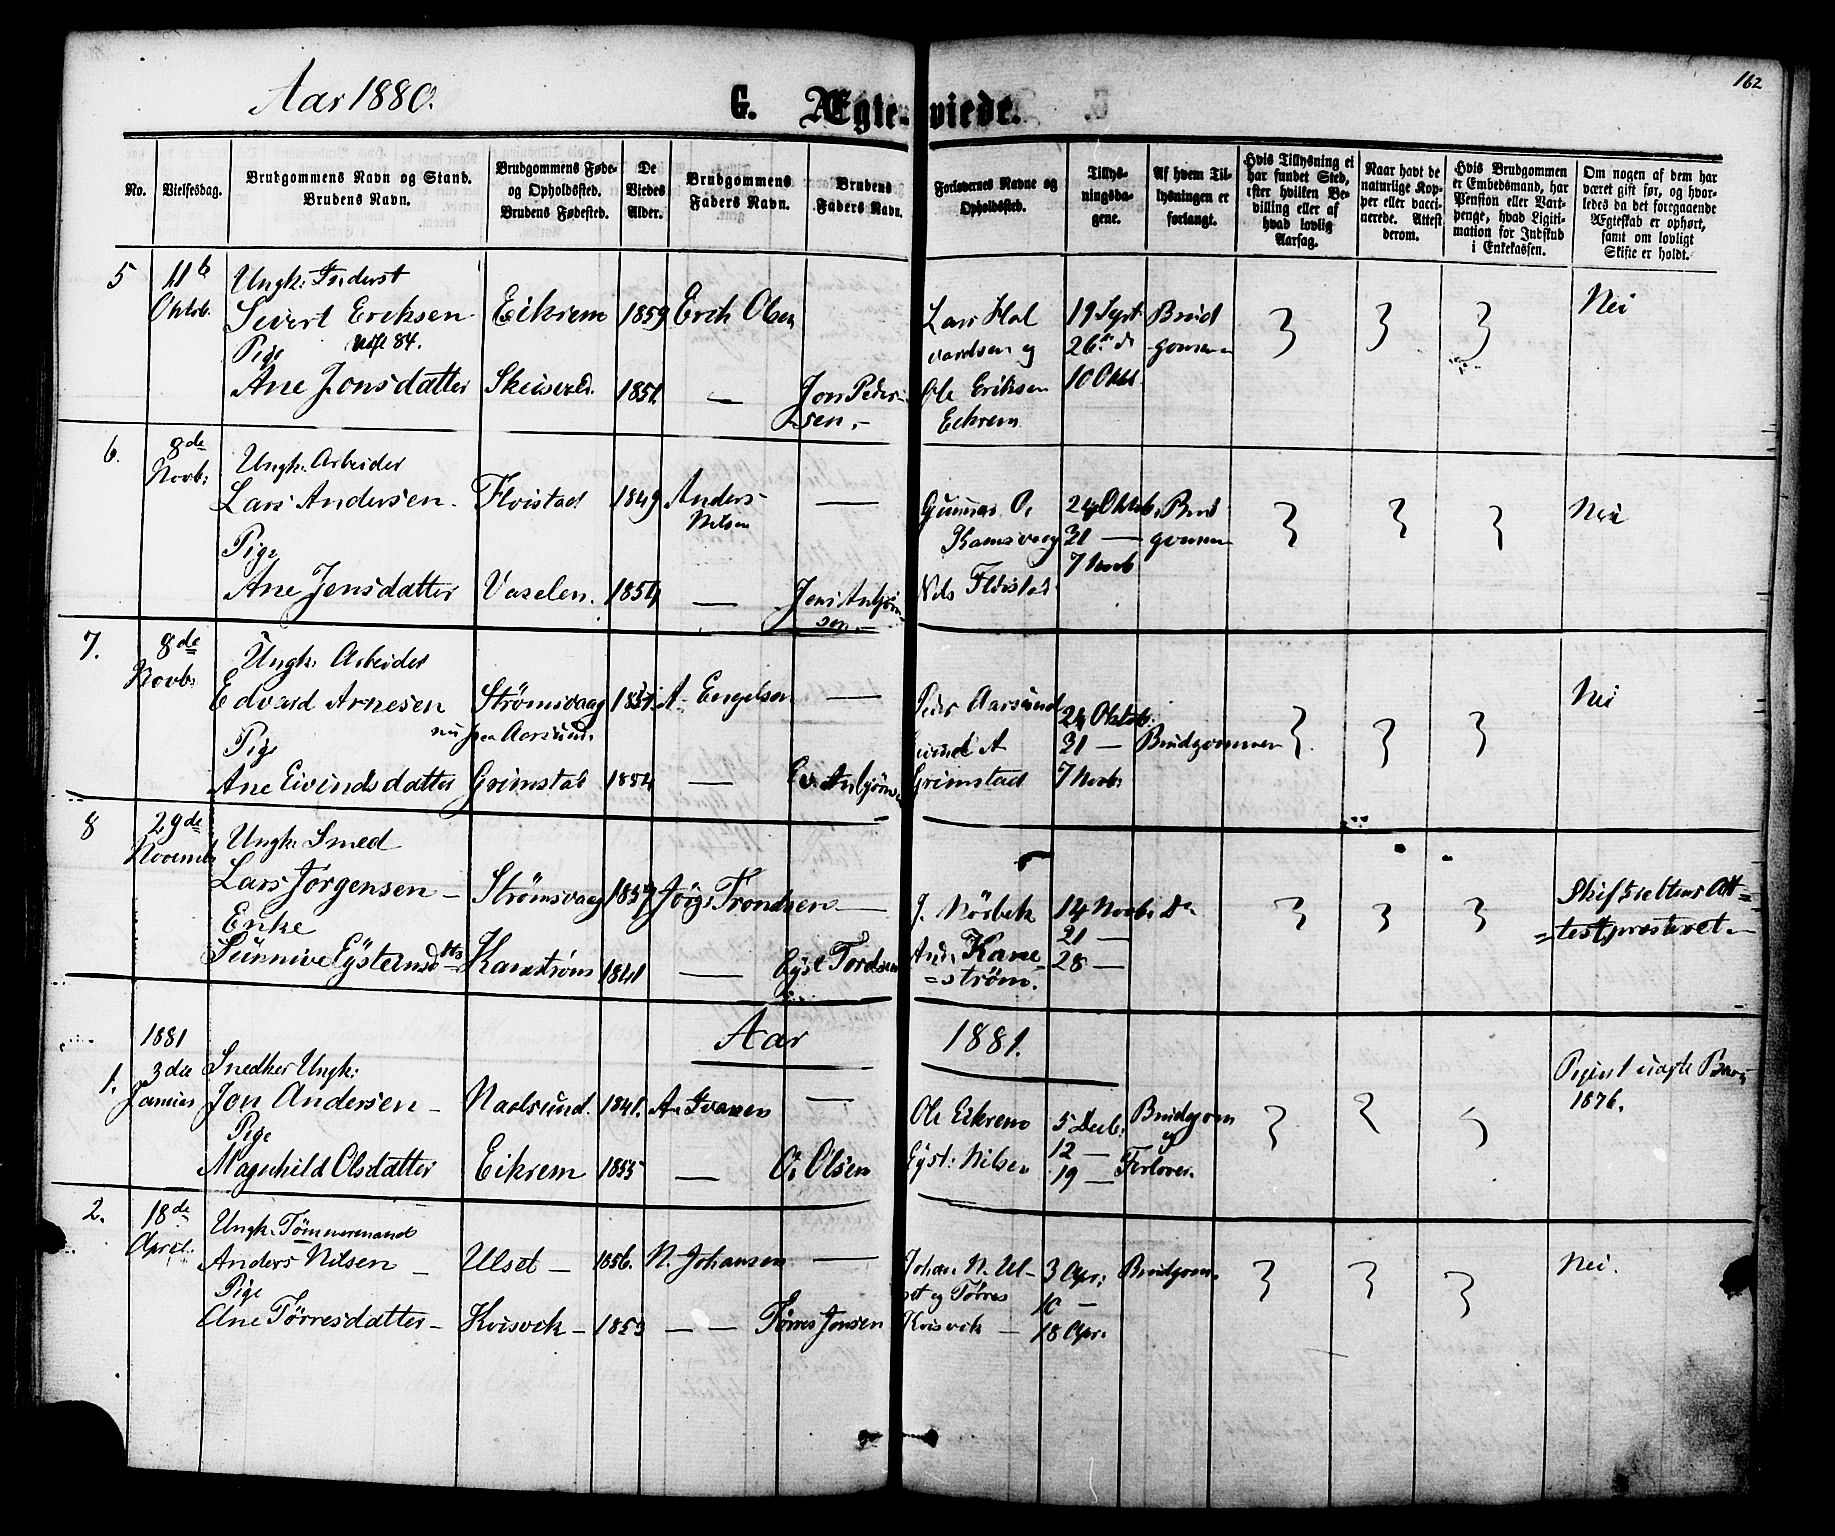 162
Aar 1880.
G. Ægte-viede.
No.
Vielsesdag.
Brudgommens Navn og Stand.
Brudens Navn.
Brudgommens Føde-
og Opholdssted.
Brudens Fødested.
De
Viedes
Alder.
Brudgommens
Faders Navn.
Brudens
Faders Navn.
Forlovernes Navne og
Opholdssted.
Tillys-
ningsda-
gene.
Af hvem Til-
lysningen er
forlangt.
Hvis Tillysning ei
har fundet Sted,
efter hvilken Be-
villing eller af
hvad lovlig
Aarsag.
Naar havt de
naturlige Kop-
per eller vacci-
nerede. Attest
derom.
Hvis Brudgommen
er Embedsmand, har
Pension eller Vart-
penge, hvad Ligiti-
mation for Indskud
i Enkekassen.
Om nogen af dem har
været gift før, og hvor-
ledes da det foregaaende
Ægteskab er ophørt,
samt om lovligt
Skifte er holdt.
5 11te Oktob.
Ungk: Inderst
Sivert Eriksen Eikrem 1859 Erik Olsen
Pige 84.
Ane Jonsdatter 1851. — Jon Peder-
sen.-
Lars Hal
vardsen og
Ole Eriksen
Eikrem
19 Sept.
26
10 Okt.
Brud
gommen
Nei
6. 8de Novb:
Ungk: Arbeider
Lars Andersen. Flvistad 1849 Anders Nilsen —
Pige
Ane Jensdatter Vaselen. 1854 —
Gunnar O.
Nils
24 Oktob.
31 —
7 Novb
Brud
gommen
Nei
7. 8de Novb:
Ungk: Arbeider
Edvard Arnesen Strömsvaag A. Engelsen —
nu paa Aarsund.
Pige
Ane Eivindsdatter Grimstad 1854 —
Peder Aarsund
Eivind A
Grimstad
24 Oktob:
31 —
7 Novb:
Brudgommen
Nei
8 29de Novemb
Ungk: Smed
Lars Jörgensen — Strömsvaag 1857 Jörg: Trondsen —
Enke
Sünnive Eysteinsdtts Kanestrøm 1841 — Eyst Tordsen
J. Nörbek
And. Kane
=strøm.
14 Novb:
21 —
28 —
Do
Skifterettens At=
=test præsteret.
Aar 1881.
1. 1881 3die Januar
Snedker Ungk:
Jon Andersen — Nadlsund. 1841. A. Ivarsen —
Pige
Magnhild Olsdatter Eikrem 1855 — O. Olsen
Ole Eikrem
Eyst: Nilsen
5 Decb.
12 —
19 —
Brudgom
og
Forlover.
Pigen uægte Barn
1876.
2. 18de April.
Ungk. Tömmermand
Anders Nilsen — Ulset — 1856. N. Johansen —
Pige
Ane Törresdatter — Kvisvik — 1853 — — Törres Jonsen
Johan N. Ul-
set og Törres
Kvisvik —
3 Apr:
10 —
18 Apr.
Brudgom.
Nei.